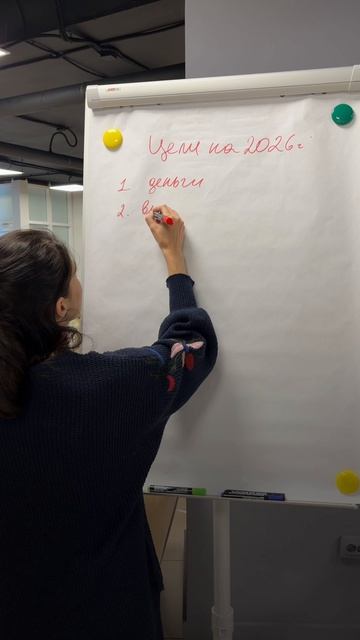 Цели на 2026г
1. деньги
2. в